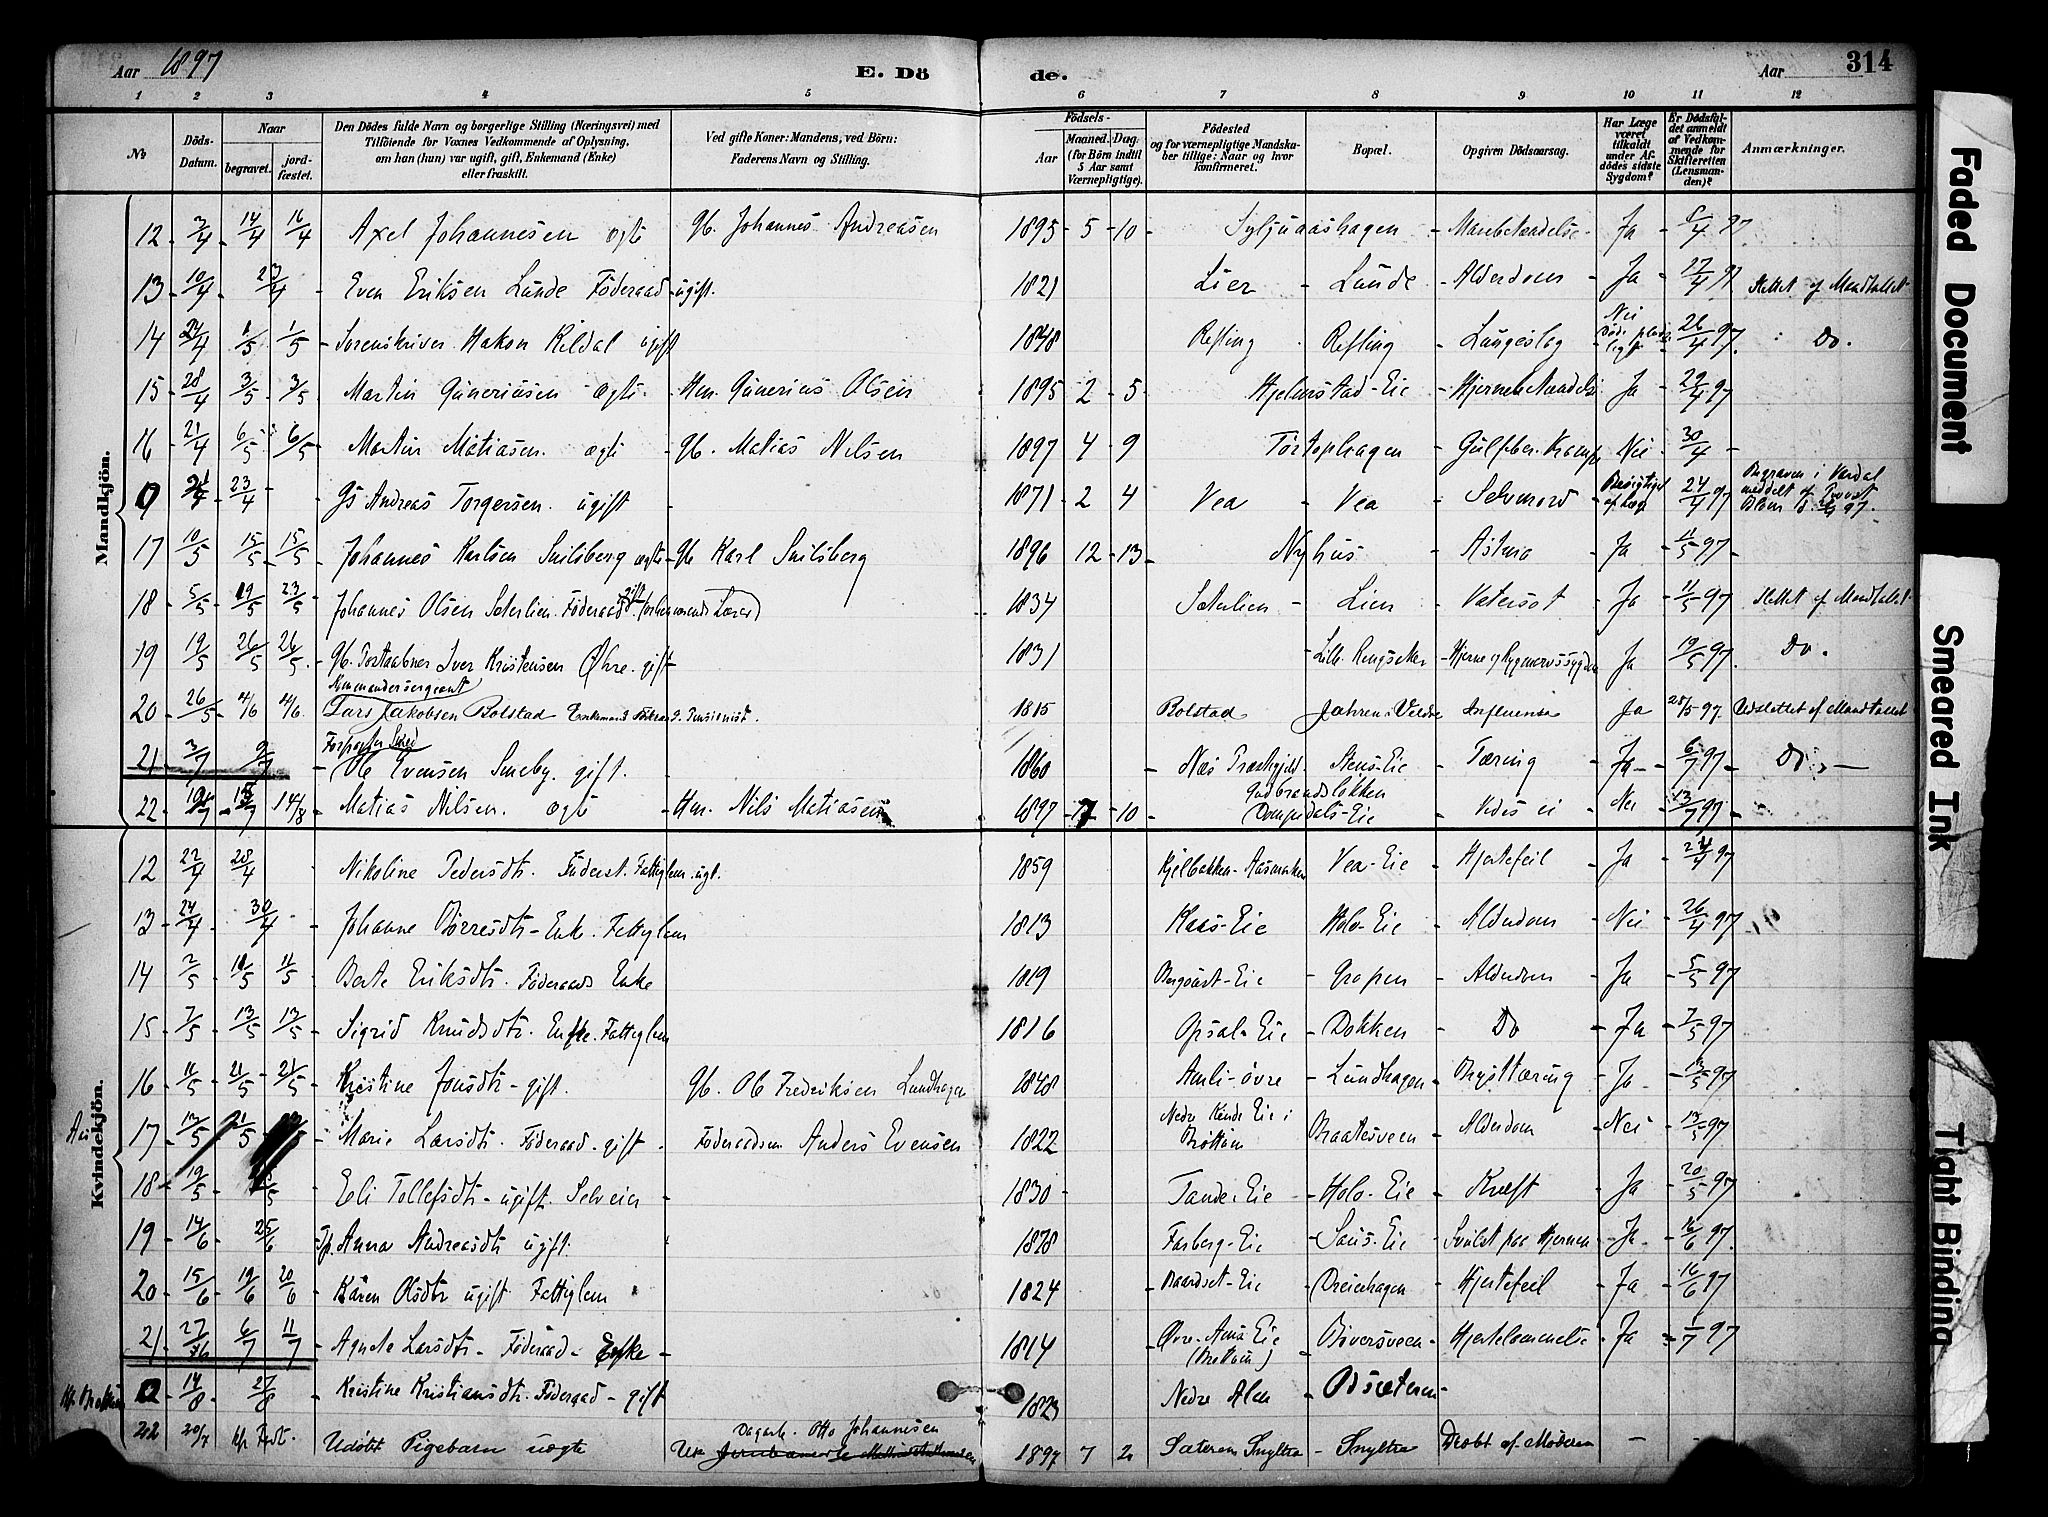 Aar 1897 E. Dö de. Aar 314
1 2 3 4 5 6 7 8 9 10 11 12
No
Döds-Datum.
Naar
begravet. jordfæstet.
Den Dödes fulde Navn og borgerlige Stilling (Næringsvei) med
Tilföiende for Voxnes Vedkommende af Oplysning,
om han (hun) var ugift, gift, Enkemand (Enke)
eller fraskilt.
Ved gifte Koner: Mandens, ved Börn:
Faderens Navn og Stilling.
Födsels-
Aar
Maaned. Dag.
(for Börn indtil
5 Aar samt
Værnepligtige).
Födested
og for værnepligtige Mandskaber tillige: Naar og hvor
konfirmeret.
Bopæl.
Opgiven Dödsaarsag.
Har Læge
været
tilkaldt
under Afdödes sidste
Sygdom?
Er Dödsfaldet anmeldt
af Vedkommende for
Skifteretten
(Lensmanden)?
Anmærkninger.
Mandkjön.
12 3/4 14/4 16/4 Axel Johannesen ægte Gb. Johannes Andreasen 1895 5 10 Syljuaashagen Ja 97
13 10/4 23/4 Even Eriksen Lunde Föderaad ugift. 1821 Lier Lunde Alderdom Ja 27/4 97 Slettet af Mandtallet
14 24/4 1/5 1/5 Sorenskriver Hakon Kildal ugift 1848 Refling Refling Lungeslag Nei 26/4 97 Do.
15 28/4 3/5 3/5 Martin Guneriusen ægte Hm. Gunerius Olsen 1895 2 5 Hjelmstad-Eie Ja 29/4 97
16 21/4 6/5 6/5 Martin Matiasen ægte Gb. Matias Nilsen 1897 4 9 Nei 30/4
0 21/4 23/4 Gs Andreas Torgersen ugift 1871 2 4 Vea Vea Selvmord 24/4 97
17 10/5 15/5 15/5 Johannes Karlsen Smilsberg ægte Gb Karl Smilsberg 1896 12 13 Nyhus Astma Ja 11/5 97
18 5/5 19/5 23/5 Johannes Olsen Saterlien Föderaad gift 1834 Saterlien Lien Vatersot Ja 11/5 97 Slettet af Mandtallet
19 19/5 26/5 26/5 Gb. Iver Kristensen Øhre gift 1831 Ja 19/5 97 Do.
20 26/5 4/6 4/6 Kommandersergeant Lars Jakobsen Bolstad Enkemand Pensionist. 1815 Bolstad Jahren i Veldre Influensa Ja 28/5 97 Udslettet af Mandtallet
21 3/7 9/7 Ole Evensen Smeby gift. 1860 Næs Stens-Eie Tæring Ja 6/7 97 Do.
22 10/7 15/7 14/8 Matias Nilsen ægte Hm. Nils Matiassen 1897 10 Nei 13/7 97
Kvindekjön.
12 22/4 28/4 Nikoline Pedersdtr. Fattiglem ugt. 1859 Vea-Eie Hjertefeil Ja 24/4 97
13 24/4 30/4 Johanne Börresdtr Enke Fattiglem 1813 Kaas-Eie Holo-Eie Alderdom Nei 26/4 97
14 2/5 10/5 11/5 Berte Eriksdtr. Föderaads Enke 1819 Eie Gropen Alderdom Ja 5/5 97
15 7/5 13/5 13/5 Sigrid Knudsdtr. Enke. Fattiglem 1816 Opsal-Eie Dokken Do Ja 7/5 97
16 11/5 21/5 21/5 Kristine Jonsdtr gift. Gb. Ole Frederiksen Lundhagen 1848 Aurli-övre Lundhagen Brysttæring Ja 13/5 97
17 13/5 21/5 Marie Larsdtr. Föderaad gift. Föderaadsm Anders Evensen 1822 Nedre Kinde Eie i Brøttum Braatesveen Alderdom Nei 13/5 97
18 19/5 Eli Tollefsdtr ugift Selveier 1830 Tande-Eie Holo-Eie Kræft Ja 20/5 97
19 14/6 25/6 Tp. Anna Andreasdtr ugift. 1878 Farberg-Eie Saus-Eie Svulst paa Hjernen Ja 16/6 97
20 15/6 19/6 20/6 Karen Olsdtr ugift Fattiglem 1824 Baardset-Eie Dreierhagen Hjertefeil Ja 16/6 97
21 27/6 6/7 11/7 Agnete Larsdtr Föderaad Enke 1814 Øvre Eie Bøversveen Hjertelammelse Ja 1/7 97
0 14/8 27/8 Kristine Kristiansdtr. Föderaad gift 1823 Nedre Alm
22 20/7 Udøbt Pigebarn uægte Dagarb. Otto Johannesen 1897 7 2 Sæteren Snyltra Snyltra Dræbt af Moderen
Faded Document
Smeared Ink
Tight Binding